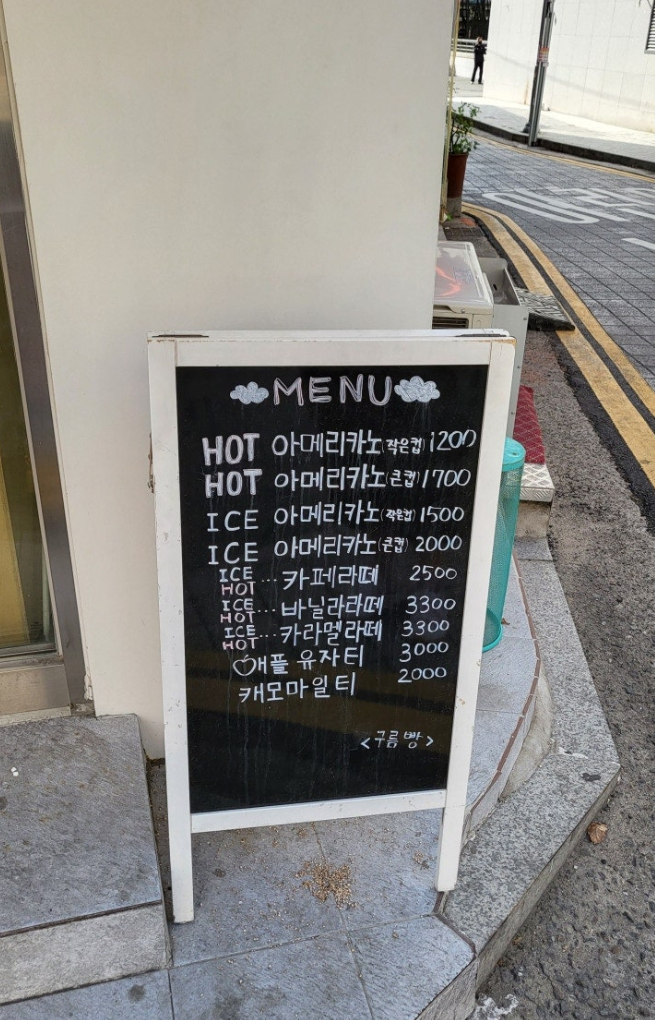 MENU
HOT 아메리카노(작은컵) 1200
HOT 아메리카노(큰컵) 1700
ICE 아메리카노(작은컵) 1500
ICE 아메리카노(큰컵) 2000
ICE HOT ... 카페라떼 2500
ICE HOT ... 바닐라라떼 3300
ICE HOT ... 카라멜라떼 3300
애플유자티 3000
캐모마일티 2000
<구름빵>